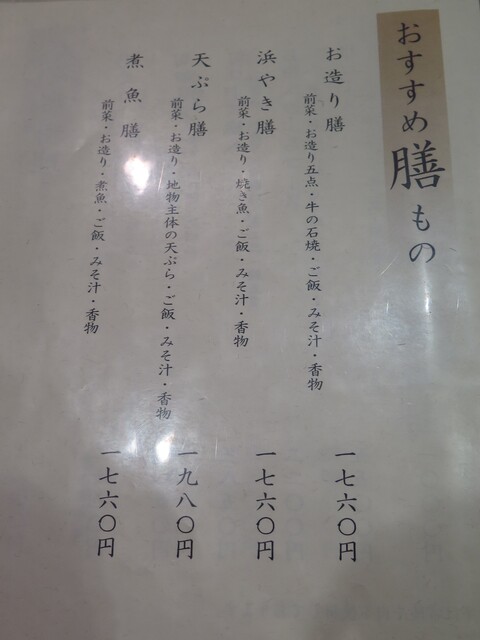 おすすめ膳もの
お造り膳
前菜・お造り五点・牛の石焼・ご飯・みそ汁・香物
一七六〇円
浜やき膳
前菜・お造り・焼き魚・ご飯・みそ汁・香物
一七六〇円
天ぷら膳
前菜・お造り・地物主体の天ぷら・ご飯・みそ汁・香物
一九八〇円
煮魚膳
前菜・お造り・煮魚・ご飯・みそ汁・香物
一七六〇円